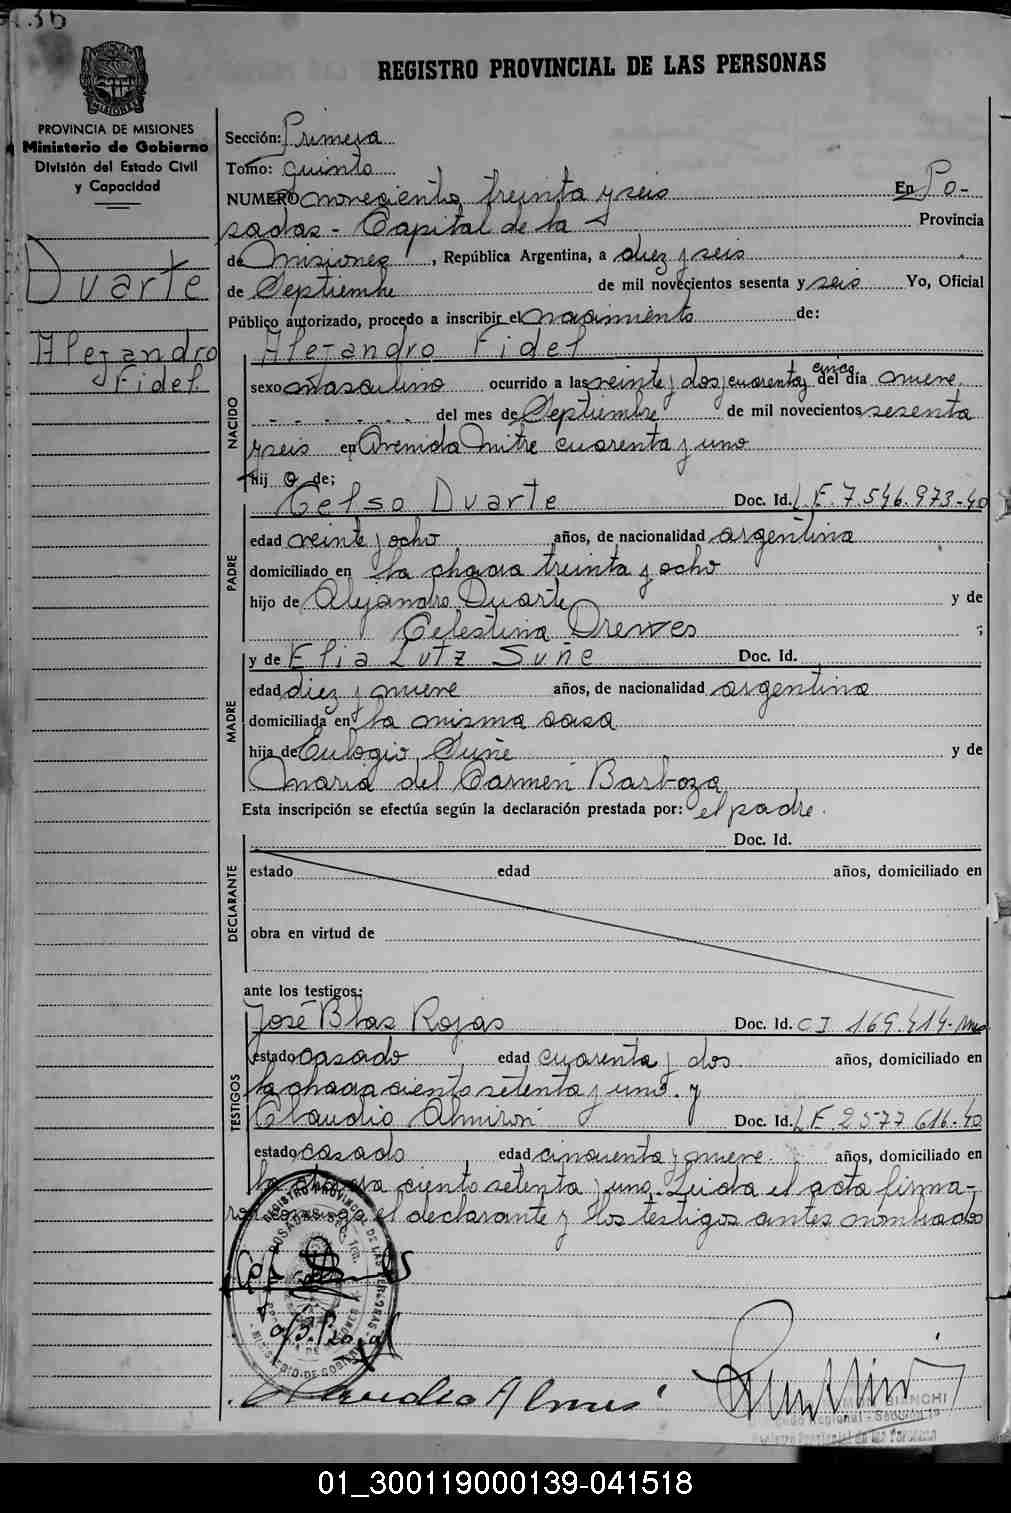 REGISTRO PROVINCIAL DE LAS PERSONAS
PROVINCIA DE MISIONES
Ministerio de Gobierno
División del Estado Civil
y Capacidad
Duarte
Alejandro
Fidel
Sección: Primera
Tomo: quinto
NUMERO novecientos treinta y seis En Po-
sadas - Capital de la Provincia
de Misiones, República Argentina, a diez y seis
de Septiembre de mil novecientos sesenta y seis Yo, Oficial
Público autorizado, procedo a inscribir el nacimiento de:
NACIDO
Alejandro Fidel
sexo masculino ocurrido a las veinte y dos y cuarenta y cinco del día nueve
del mes de Septiembre de mil novecientos sesenta
y seis en Avenida Mitre cuarenta y uno
hij o de;
PADRE
Celso Duarte Doc. Id. L.E. 7.546.973-40
edad veinte y ocho años, de nacionalidad argentina
domiciliado en la chacra treinta y ocho
hijo de Alejandro Duarte y de
Celestina Drewes ;
MADRE
y de Elia Lutz Suñe Doc. Id.
edad diez y nueve años, de nacionalidad argentina
domiciliada en la misma casa
hija de Eulogio Suñe y de
Maria del Carmen Barboza
Esta inscripción se efectúa según la declaración prestada por: el padre.
DECLARANTE
Doc. Id.
estado edad años, domiciliado en
obra en virtud de
ante los testigos:
TESTIGOS
José Blas Rojas Doc. Id. CI 169.414-Mnes
estado casado edad cuarenta y dos. años, domiciliado en
la chacra ciento setenta y uno. y
Claudio Almirón Doc. Id. L.E. 2577616-40
estado casado edad cincuenta y nueve. años, domiciliado en
la chacra ciento setenta y uno. Leida el acta firma-
ron conmigo el declarante y los testigos antes nombrados
REGISTRO PROVINCIAL DE LAS PERSONAS
POSADAS
MINISTERIO DE GOBIERNO
Claudio Almir
BIANCHI
Sección 1ª
Registro Provincial de las Personas
01_300119000139-041518